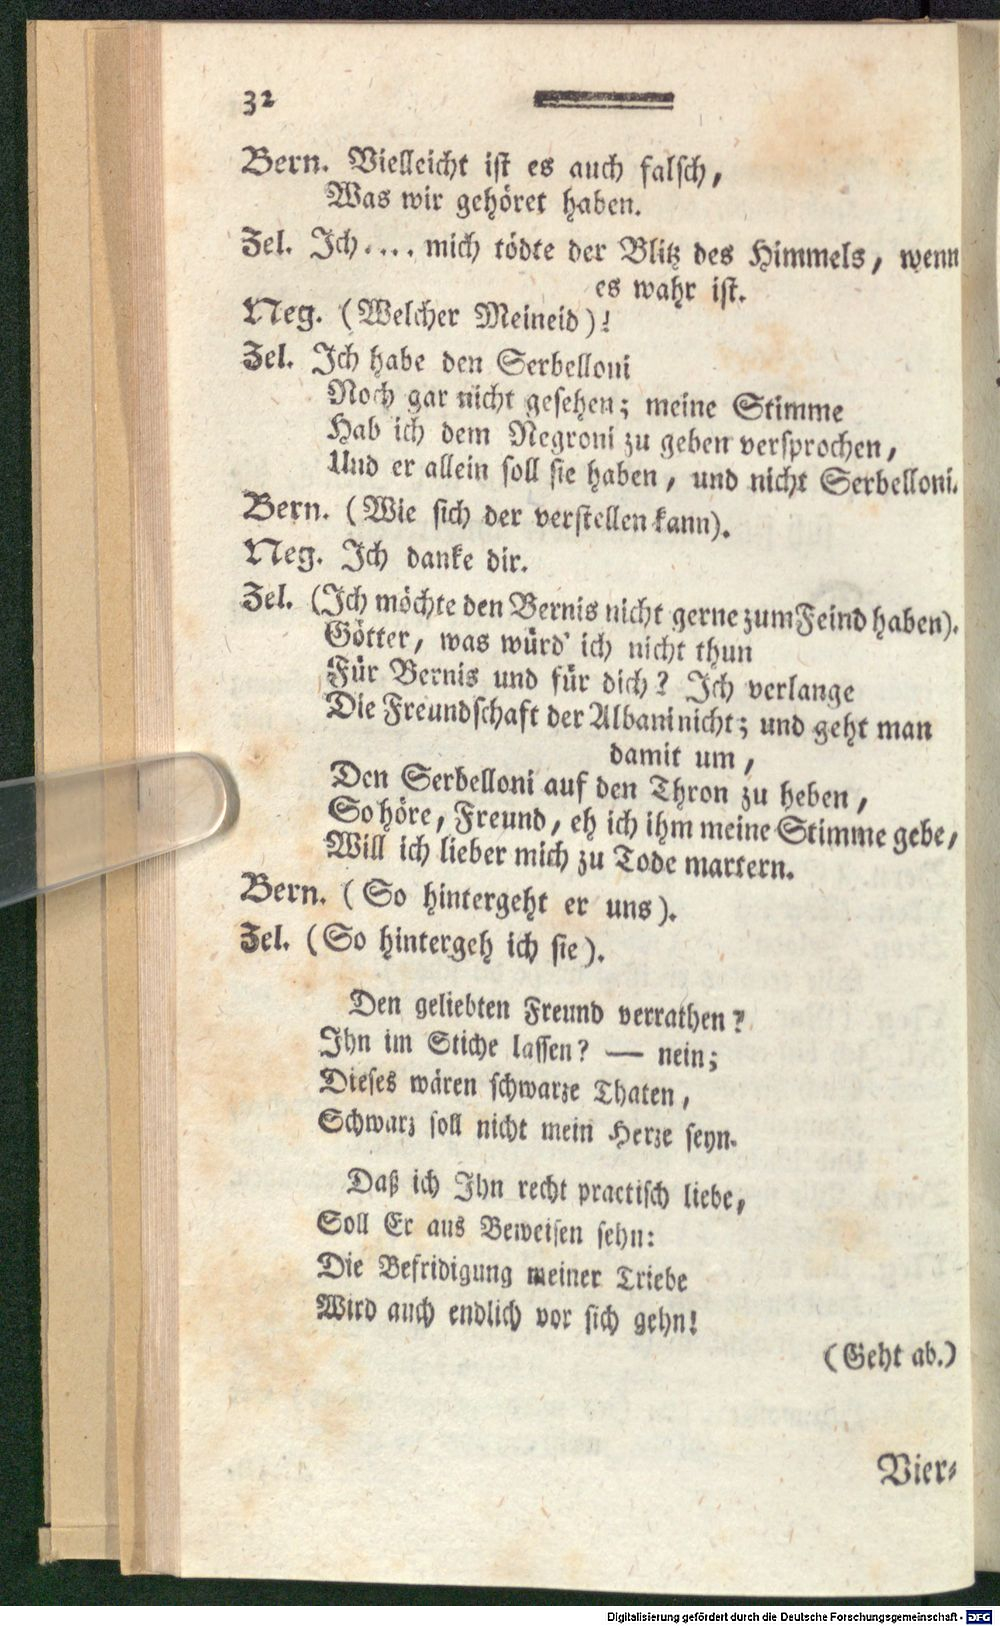 32
Bern. Vielleicht ist es auch falsch,
Was wir gehöret haben.
Zel. Ich.... mich tödte der Blitz des Himmels, wenn
es wahr ist.
Neg. (Welcher Meineid)!
Zel. Ich habe den Serbelloni
Noch gar nicht gesehen; meine Stimme
Hab ich dem Negroni zu geben versprochen,
Und er allein soll sie haben, und nicht Serbelloni.
Bern. (Wie sich der verstellen kann).
Neg. Ich danke dir.
Zel. (Ich möchte den Bernis nicht gerne zum Feind haben).
Götter, was würd' ich nicht thun
Für Bernis und für dich? Ich verlange
Die Freundschaft der Albani nicht; und geht man
damit um,
Den Serbelloni auf den Thron zu heben,
So höre, Freund, eh ich ihm meine Stimme gebe,
Will ich lieber mich zu Tode martern.
Bern. (So hintergeht er uns).
Zel. (So hintergeh ich sie).
Den geliebten Freund verrathen?
Ihn im Stiche lassen? — nein;
Dieses wären schwarze Thaten,
Schwarz soll nicht mein Herze seyn.
Daß ich Ihn recht practisch liebe,
Soll Er aus Beweisen sehn:
Die Befridigung meiner Triebe
Wird auch endlich vor sich gehn!
(Geht ab.)
Vier-
Digitalisierung gefördert durch die Deutsche Forschungsgemeinschaft - DFG